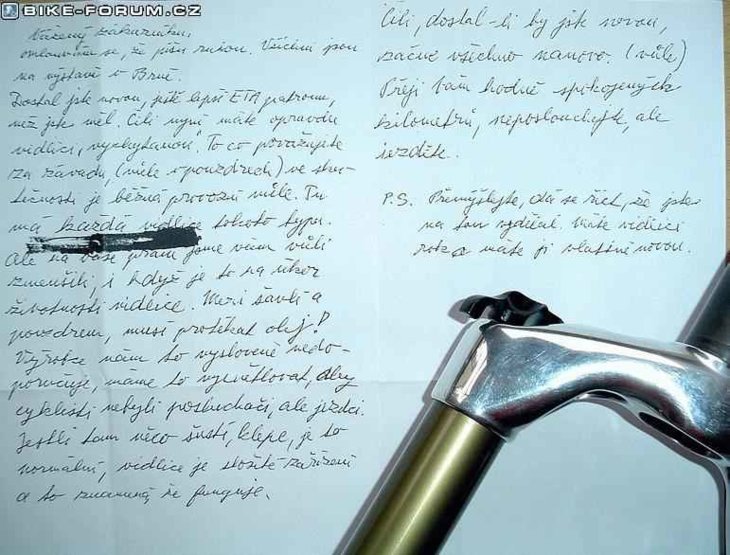 BIKE-FORUM.CZ
Vážený zákazníku,
omlouvám se, že píšu rukou. Všichni jsou
na výstavě v Brně.
Dostal jste novou, ještě lepší ETA patronu,
než jste měl. Čili nyní máte opravdu
vidlici, vychytanou". To co považujete
za závadu, (vůle v pouzdrech) ve sku-
tečnosti je běžná provozní vůle. Tu
má každá vidlice tohoto typu.
Ale na vaše přání jsme vám vůli
zmenšili, i když je to na úkor
životnosti vidlice. Mezi šavlí a
pouzdrem, musí protékat olej!
Výrobce nám to vysloveně nedo-
poručuje, máme to vysvětlovat, aby
cyklisti nebyli posluchači, ale jezdci.
Jestli tam něco šustí, klepe, je to
normální, vidlice je složité zařízení
a to znamená že funguje.
Čili, dostal-li by jste novou,
začne všechno nanovo. (vůle)
Přeji Vám hodně spokojených
kilometrů, neposlouchejte, ale
jezděte.
P.S. Přemýšlejte, dá se říct, že jste
na tom vydělal. Máte vidlici
rok a máte ji vlastně novou.